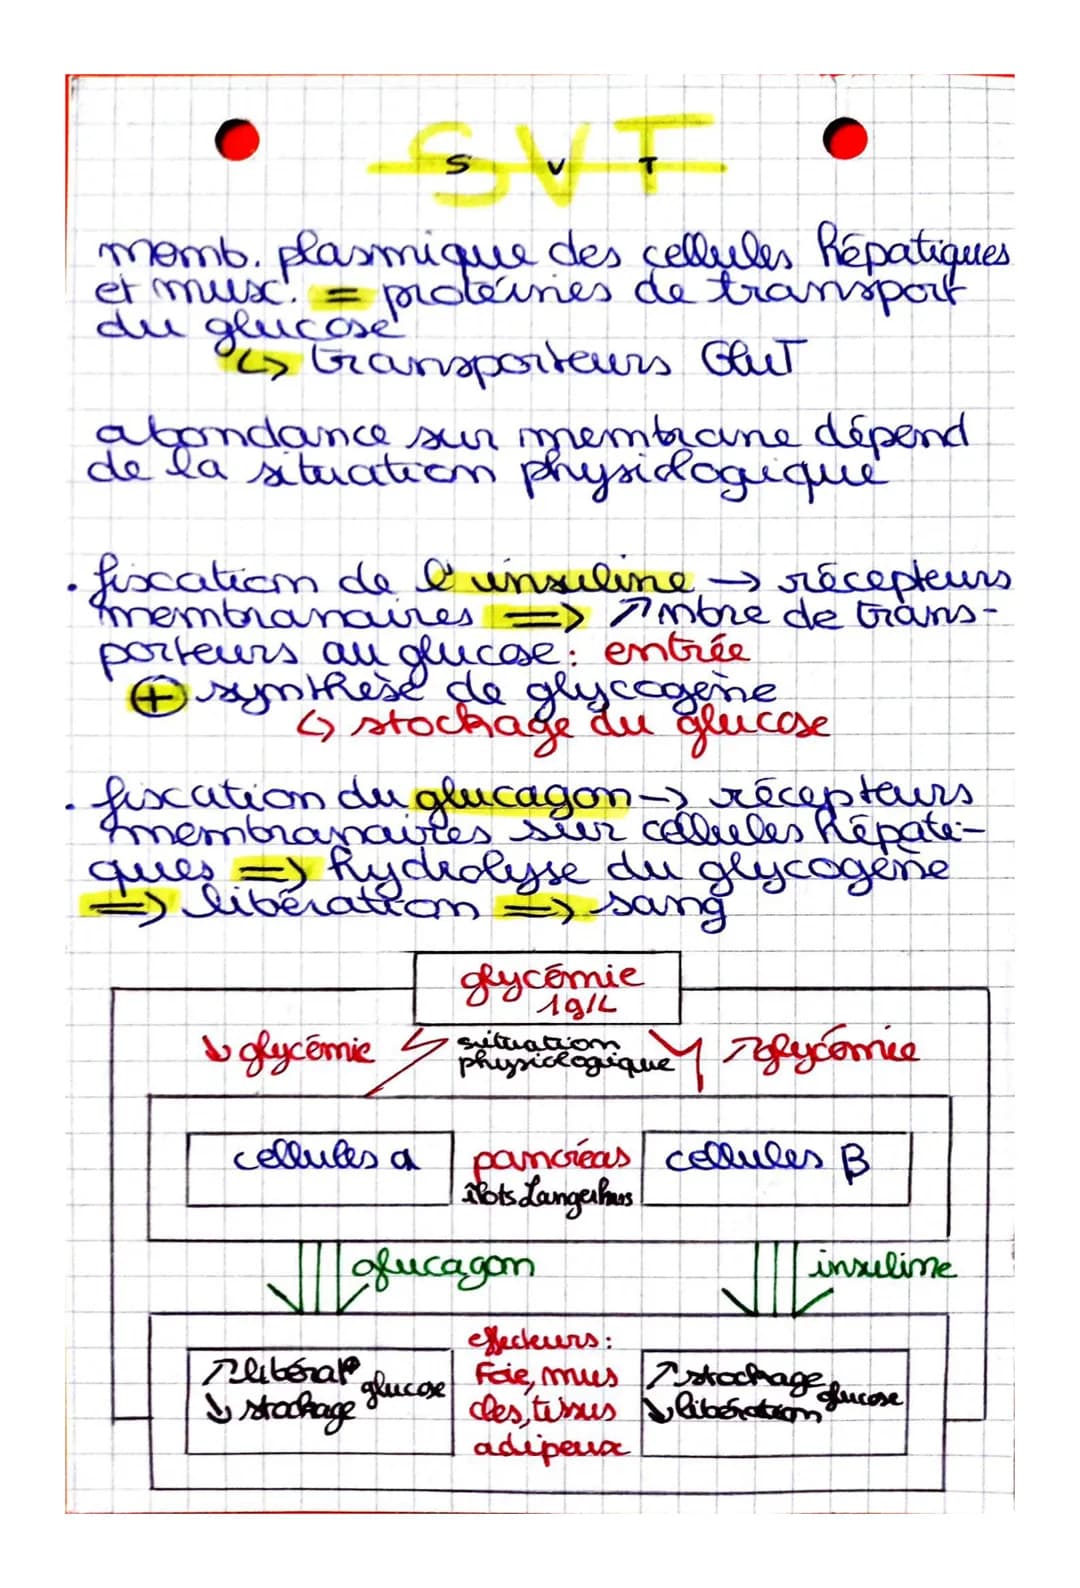 SVT
S V T
memb. plasmique des cellules hépatiques
et musc. = protéines de transport
du glucose
↳ transporteurs GluT
abondance sur membrane dépend
de la situation physiologique
. fixation de l'insuline → récepteurs
membranaires => ↗ nbre de trans-
porteurs au glucose: entrée
⊕ synthèse de glycogène
↳ stockage du glucose
. fixation du glucagon → récepteurs
membranaires sur cellules hépati-
ques => hydrolyse du glycogène
=> libération => sang
glycémie
1g/L
↘ glycémie situation ↗ glycémie
physiologique
cellules α pancréas cellules β
îlots Langerhans
glucagon insuline
effecteurs:
↗ libérat° glucose Foie, mus ↗ stockage glucose
↘ stockage cles, tissus ↘ libération
adipeux